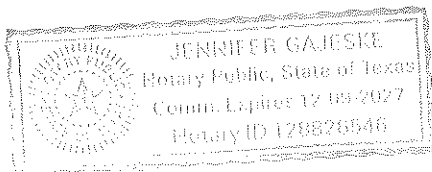 JENNIFER GAJESKE
Notary Public, State of Texas
Comm. Expires 12-09-2027
Notary ID 128826546